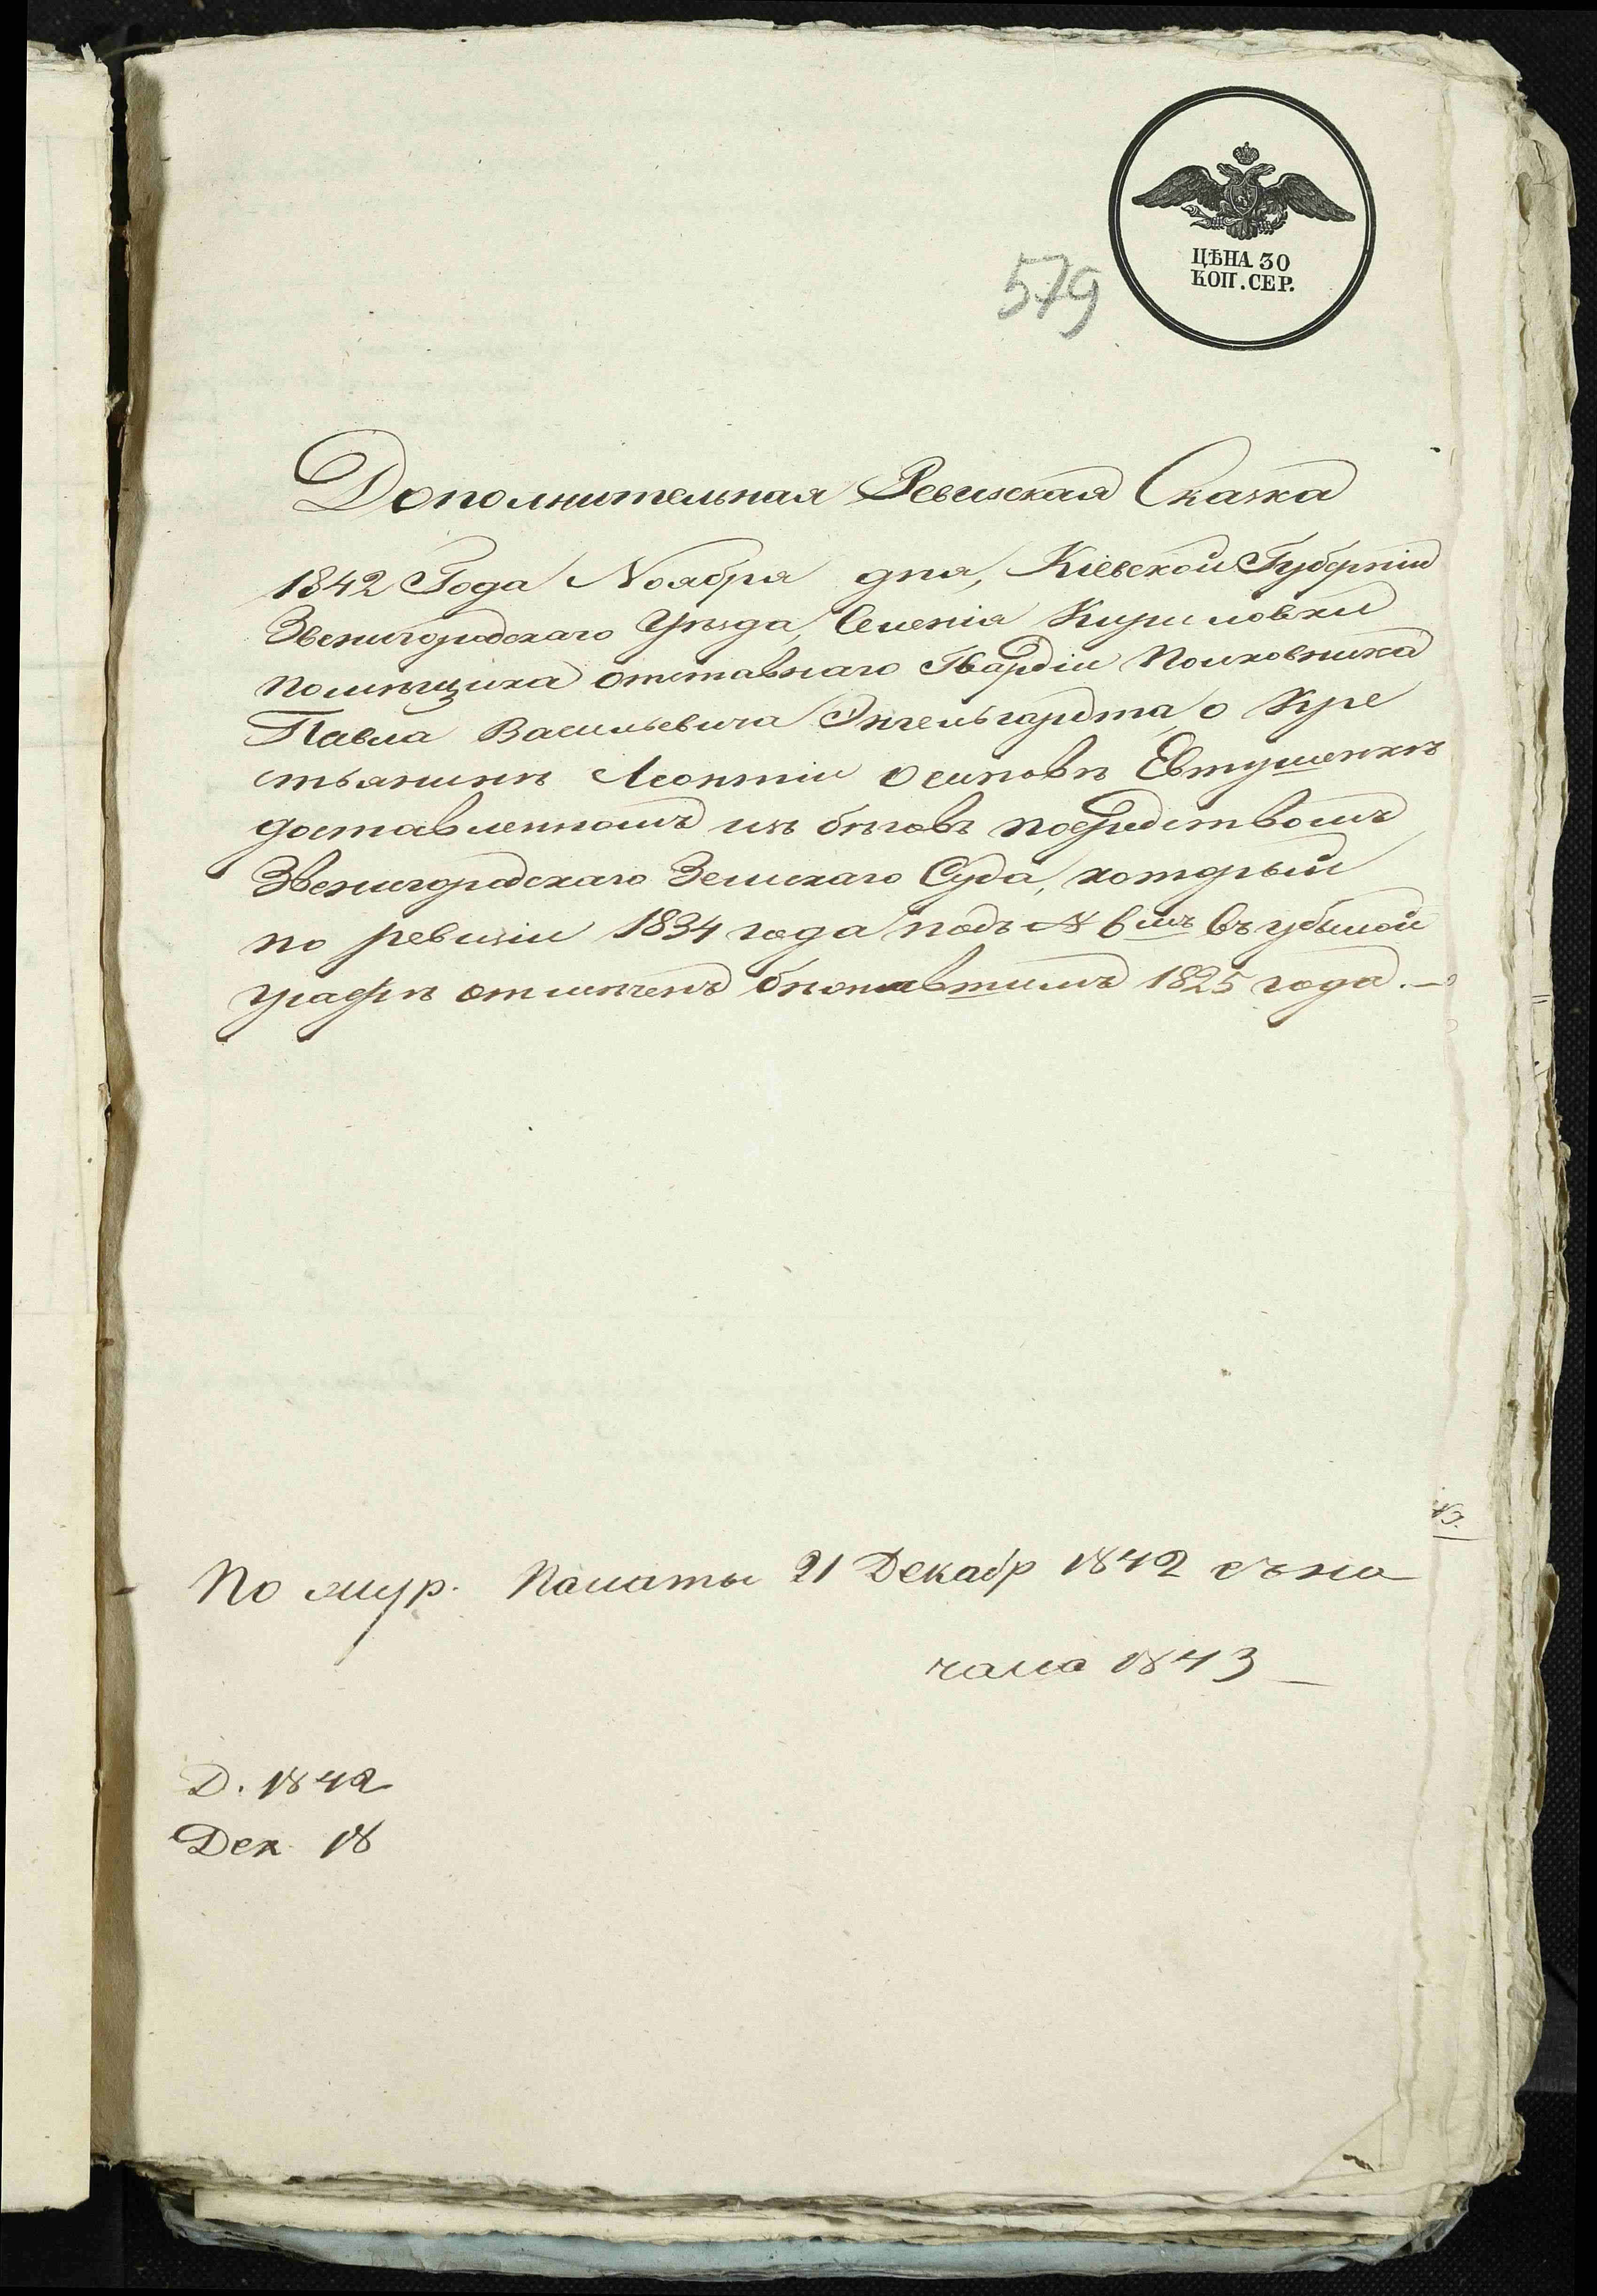 ЦѢНА 30
КОП. СЕР.
579
Дополнительная Ревизская Сказка
1842 Года Ноября дня, Кіевской Губерніи
Звенигородскаго Уѣзда, Селенія Кириловки
помѣщика отставнаго Гвардіи Полковника
Павла Васильевича Энгельгардта, о Кре
стьянинѣ Леонтіи Осиповѣ Евтушенкѣ
доставленномъ изъ бѣговъ посредствомъ
Звенигородскаго Земскаго Суда, который
по ревизіи 1834 года подъ № 6мъ въ убылой
графѣ отмѣченъ бѣжавшимъ 1825 года.
По жур. Палаты 21 Декабр 1842 съ на
чала 1843
Д. 1842
Дек 18